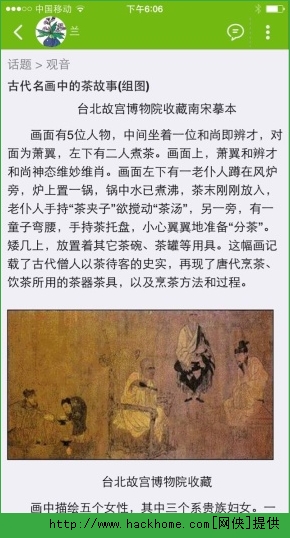 中国移动 下午6:06
兰
话题 > 观音
古代名画中的茶故事(组图)
台北故宫博物院收藏南宋摹本
画面有5位人物，中间坐着一位和尚即辨才，对
面为萧翼，左下有二人煮茶。画面上，萧翼和辨才
和尚神态维妙维肖。画面左下有一老仆人蹲在风炉
旁，炉上置一锅，锅中水已煮沸，茶末刚刚放人，
老仆人手持“茶夹子”欲搅动“茶汤”，另一旁，有一
童子弯腰，手持茶托盘，小心翼翼地准备“分茶”。
矮几上，放置着其它茶碗、茶罐等用具。这幅画记
载了古代僧人以茶待客的史实，再现了唐代烹茶、
饮茶所用的茶器茶具，以及烹茶方法和过程。
台北故宫博物院收藏
画中描绘五个女性，其中三个系贵族妇女。一
http://www.hackhome.com[网侠]提供